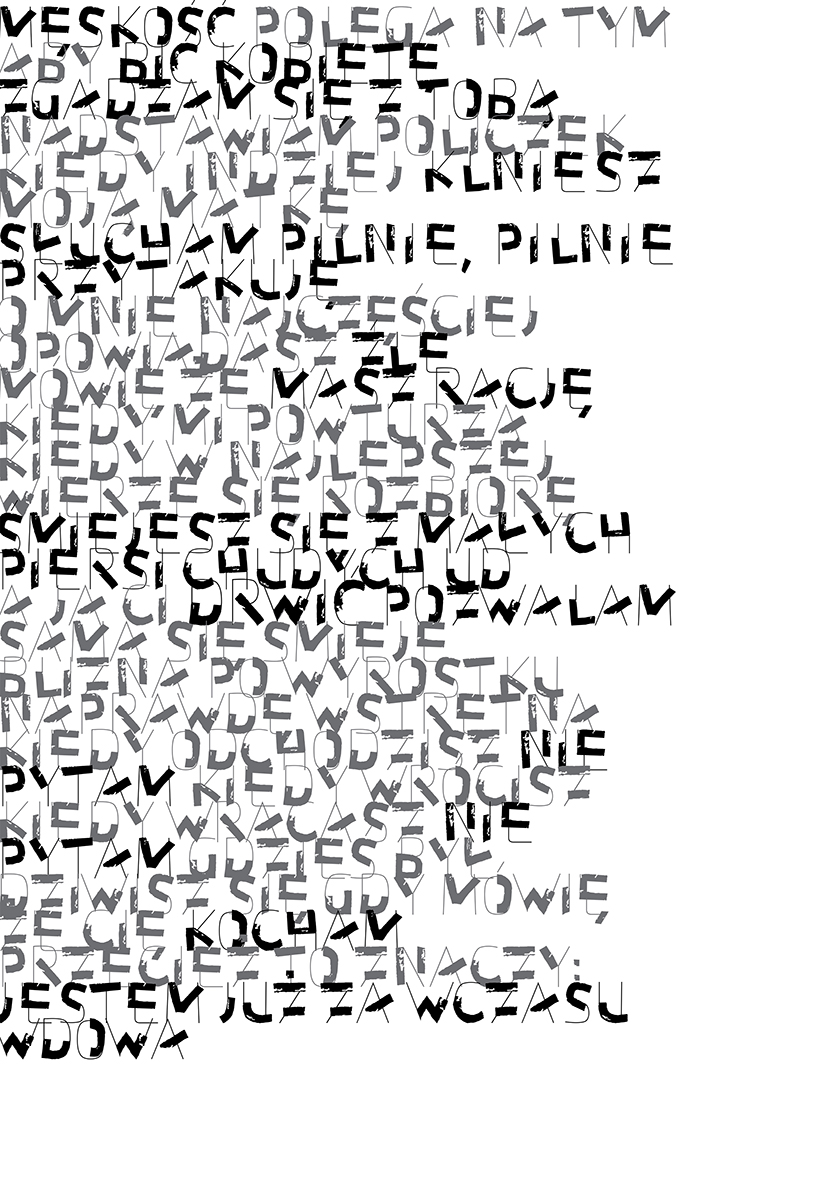 MĘSKOŚĆ POLEGA NA TYM
ABY BIĆ KOBIETĘ
ZGADZAM SIĘ Z TOBĄ
NADSTAWIAM POLICZEK
KIEDY INDZIEJ KLNIESZ
MOJĄ MATKĘ
SŁUCHAM PILNIE, PILNIE
PRZYTAKUJĘ
O MNIE NAJCZĘŚCIEJ
OPOWIADASZ ŹLE
MÓWIĘ ŻE MASZ RACJĘ
KIEDY MI POWTÓRZĄ
KIEDY W NAJLEPSZEJ
WIERZE SIĘ ROZBIORĘ
ŚMIEJESZ SIĘ Z MAŁYCH
PIERSI CHUDYCH UD
A JA CI DRWIĆ POZWALAM
SAMA SIĘ ŚMIEJĘ
BLIZNA PO WYROSTKU
NAPRAWDĘ WSTRĘTNA
KIEDY ODCHODZISZ NIE
PYTAM KIEDY WRÓCISZ
KIEDY WRACASZ NIE
PYTAM GDZIEŚ BYŁ
DZIWISZ SIĘ GDY MÓWIĘ
ŻE CIĘ KOCHAM
PRZECIEŻ TO ZNACZY:
JESTEM JUŻ ZA WCZASU
WDOWĄ